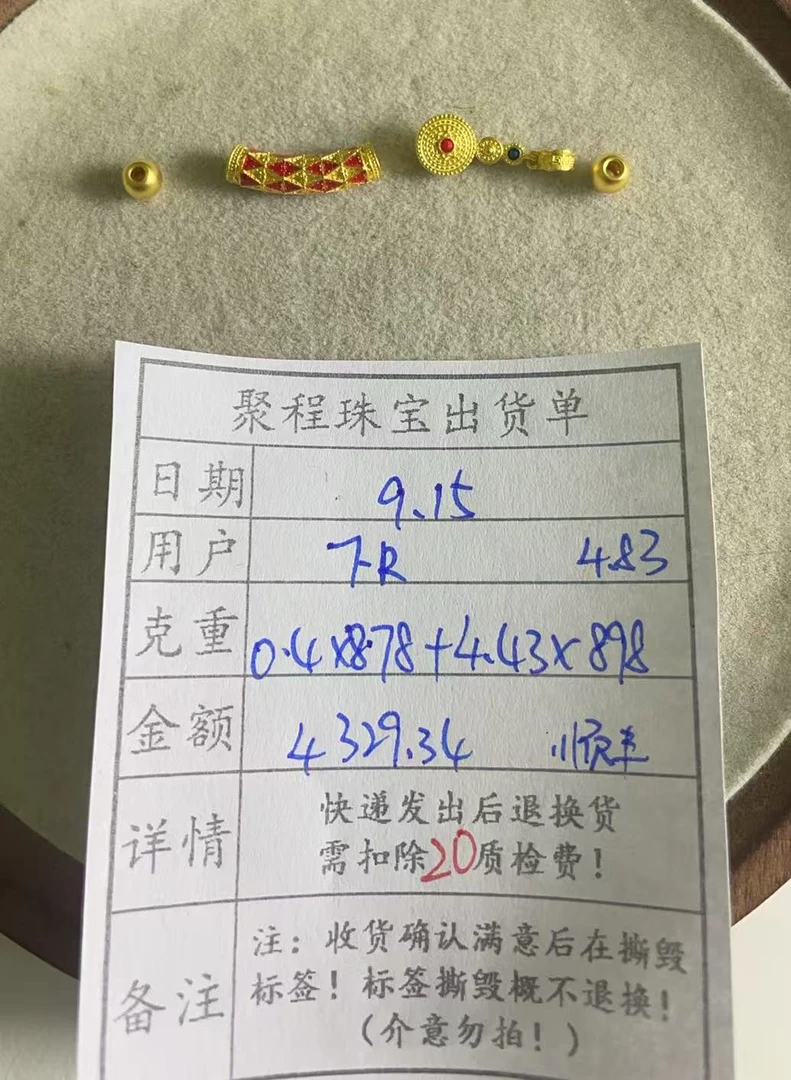 聚程珠宝出货单
日期 9.15
用户 TR 4.83
克重 0.4x878+4.43x898
金额 4329.34
详情 快递发出后退换货
需扣除20质检费!
备注 注:收货确认满意后在撕毁
标签!标签撕毁概不退换!
(介意勿拍!)